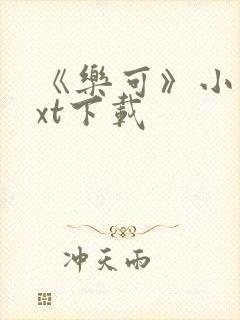 《樂可》小
xt下載
冲天雨